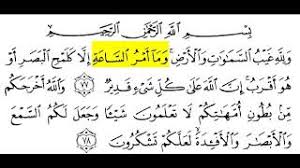 بِسْمِ اللَّهِ الرَّحْمَٰنِ الرَّحِيمِ
وَلِلَّهِ غَيْبُ السَّمَاوَاتِ وَالْأَرْضِ ۚ وَمَا أَمْرُ السَّاعَةِ إِلَّا كَلَمْحِ الْبَصَرِ أَوْ
هُوَ أَقْرَبُ ۚ إِنَّ اللَّهَ عَلَىٰ كُلِّ شَيْءٍ قَدِيرٌ ٧٧ وَاللَّهُ أَخْرَجَكُم
مِّن بُطُونِ أُمَّهَاتِكُمْ لَا تَعْلَمُونَ شَيْئًا وَجَعَلَ لَكُمُ السَّمْعَ
وَالْأَبْصَارَ وَالْأَفْئِدَةَ ۙ لَعَلَّكُمْ تَشْكُرُونَ ٧٨